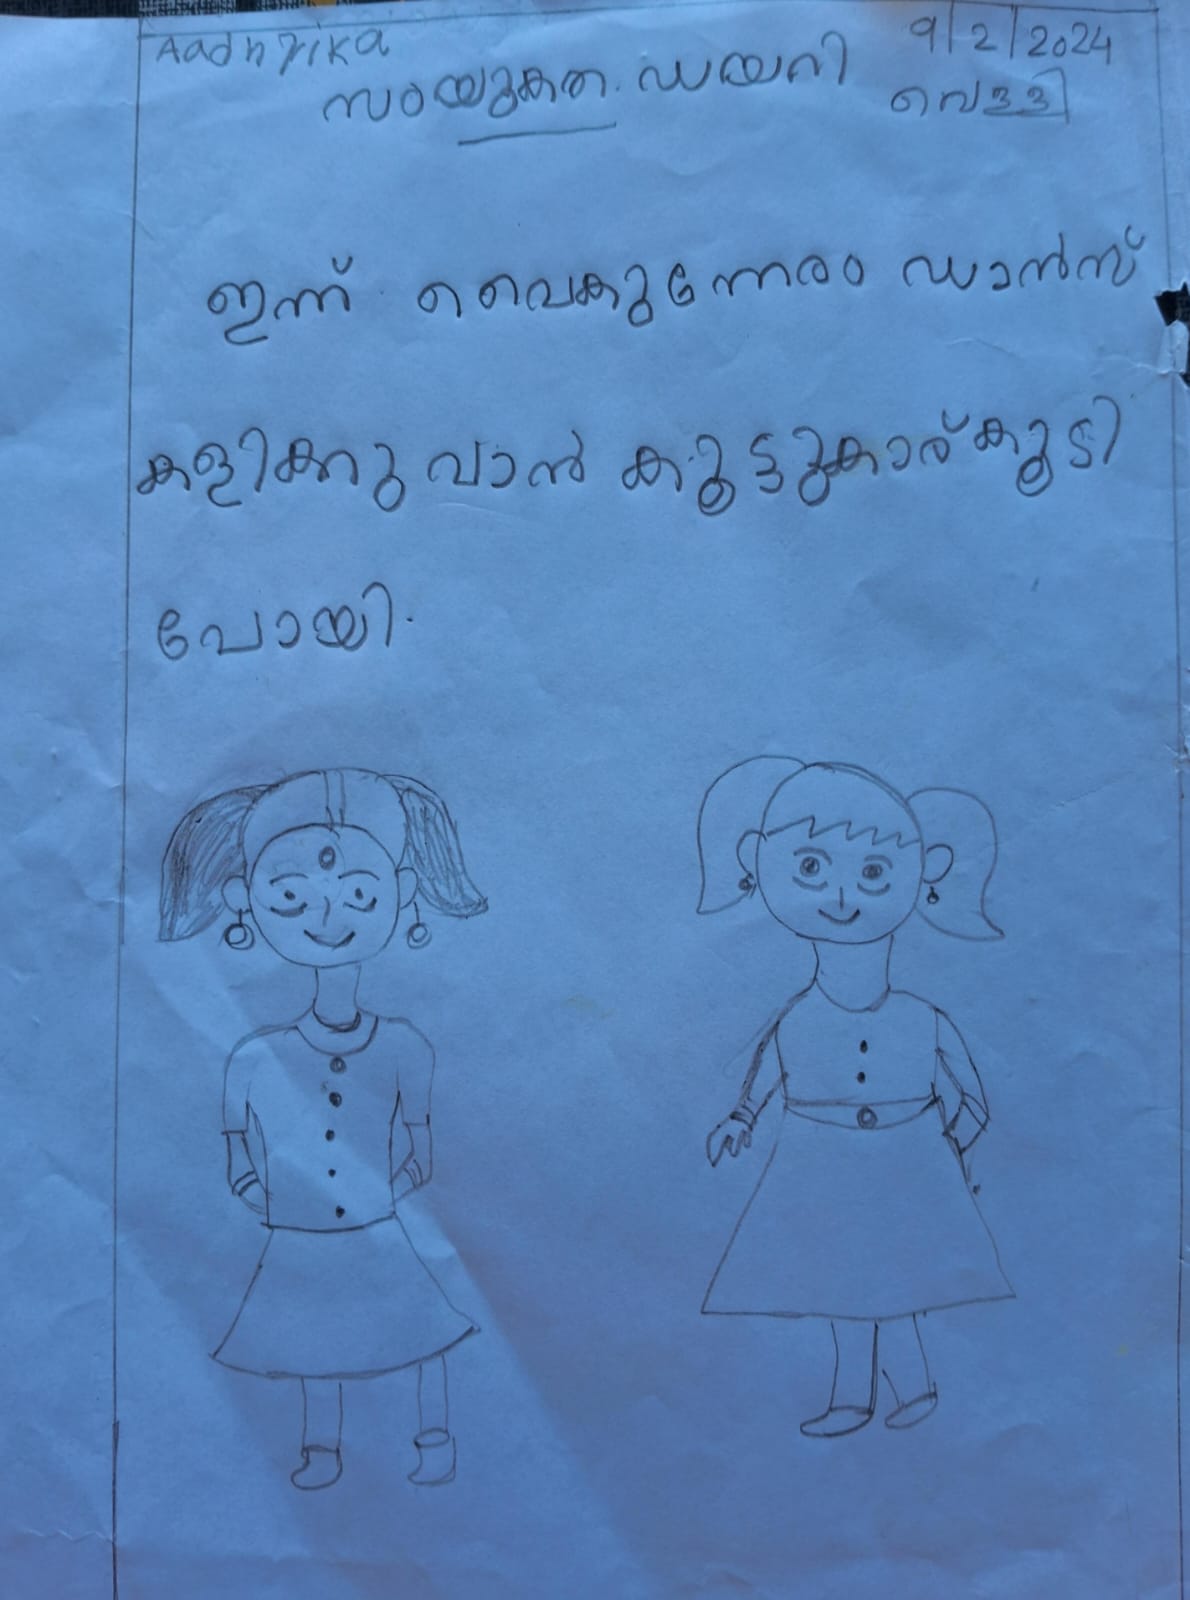 Aadhrika
9/2/2024
സംയുകത. ഡയറി
വെള്ളി
ഇന്ന് വൈകുന്നേരം ഡാൻസ്
കളിക്കുവാൻ കൂട്ടുകാര്കൂടി
പോയി.